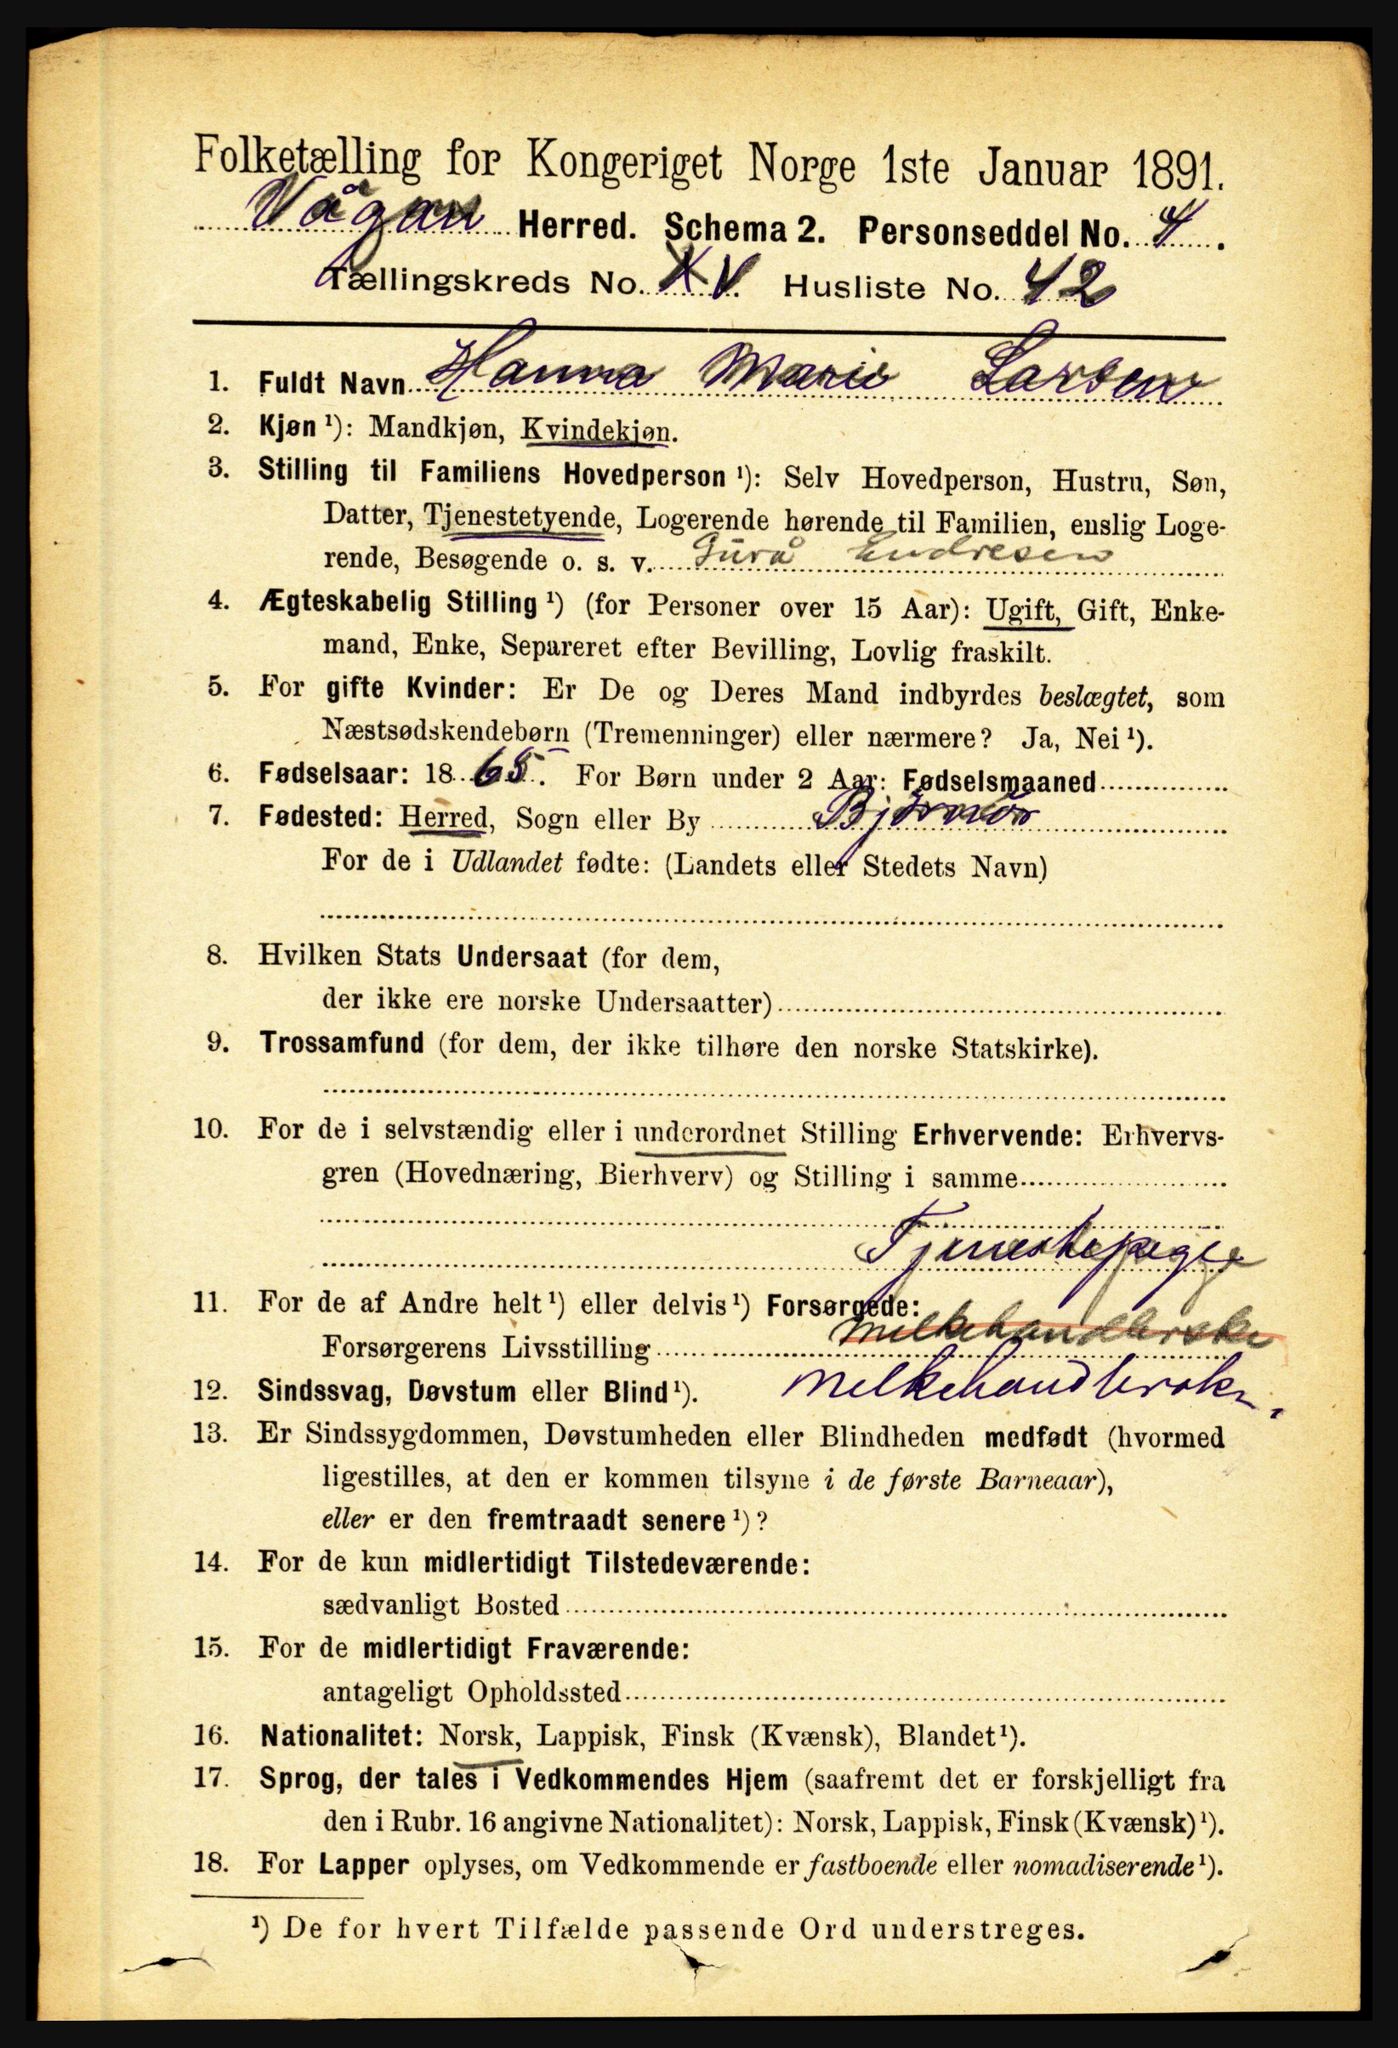 Folketælling for Kongeriget Norge 1ste Januar 1891.
Vågan Herred. Schema 2. Personseddel No. 4.
Tællingskreds No. XV Husliste No. 42
1. Fuldt Navn Hanna Marie Larsen
2. Kjøn ¹): Mandkjøn, Kvindekjøn.
3. Stilling til Familiens Hovedperson ¹): Selv Hovedperson, Hustru, Søn,
Datter, Tjenestetyende, Logerende hørende til Familien, enslig Loge-
rende, Besøgende o. s. v. Endresen
4. Ægteskabelig Stilling ¹) (for Personer over 15 Aar): Ugift, Gift, Enke-
mand, Enke, Separeret efter Bevilling, Lovlig fraskilt.
5. For gifte Kvinder: Er De og Deres Mand indbyrdes beslægtet, som
Næstsødskendebørn (Tremenninger) eller nærmere? Ja, Nei ¹).
6. Fødselsaar: 1865. For Børn under 2 Aar: Fødselsmaaned
7. Fødested: Herred, Sogn eller By Bjørnør
For de i Udlandet fødte: (Landets eller Stedets Navn)
8. Hvilken Stats Undersaat (for dem,
der ikke ere norske Undersaatter)
9. Trossamfund (for dem, der ikke tilhøre den norske Statskirke).
10. For de i selvstændig eller i underordnet Stilling Erhvervende: Erhvervs-
gren (Hovednæring, Bierhverv) og Stilling i samme
Tjenestepige
11. For de af Andre helt ¹) eller delvis ¹) Forsørgede:
Forsørgerens Livsstilling melkehandlerske
12. Sindssvag, Døvstum eller Blind ¹). melkehandlerske
13. Er Sindssygdommen, Døvstumheden eller Blindheden medfødt (hvormed
ligestilles, at den er kommen tilsyne i de første Barneaar),
eller er den fremtraadt senere ¹)?
14. For de kun midlertidigt Tilstedeværende:
sædvanligt Bosted
15. For de midlertidigt Fraværende:
antageligt Opholdssted
16. Nationalitet: Norsk, Lappisk, Finsk (Kvænsk), Blandet ¹).
17. Sprog, der tales i Vedkommendes Hjem (saafremt det er forskjelligt fra
den i Rubr. 16 angivne Nationalitet): Norsk, Lappisk, Finsk (Kvænsk) ¹).
18. For Lapper oplyses, om Vedkommende er fastboende eller nomadiserende ¹).
¹) De for hvert Tilfælde passende Ord understreges.